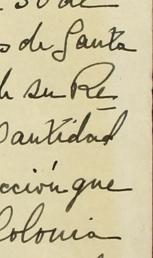 s de Santa
de su Re
Cantidad
cción que
Colonia